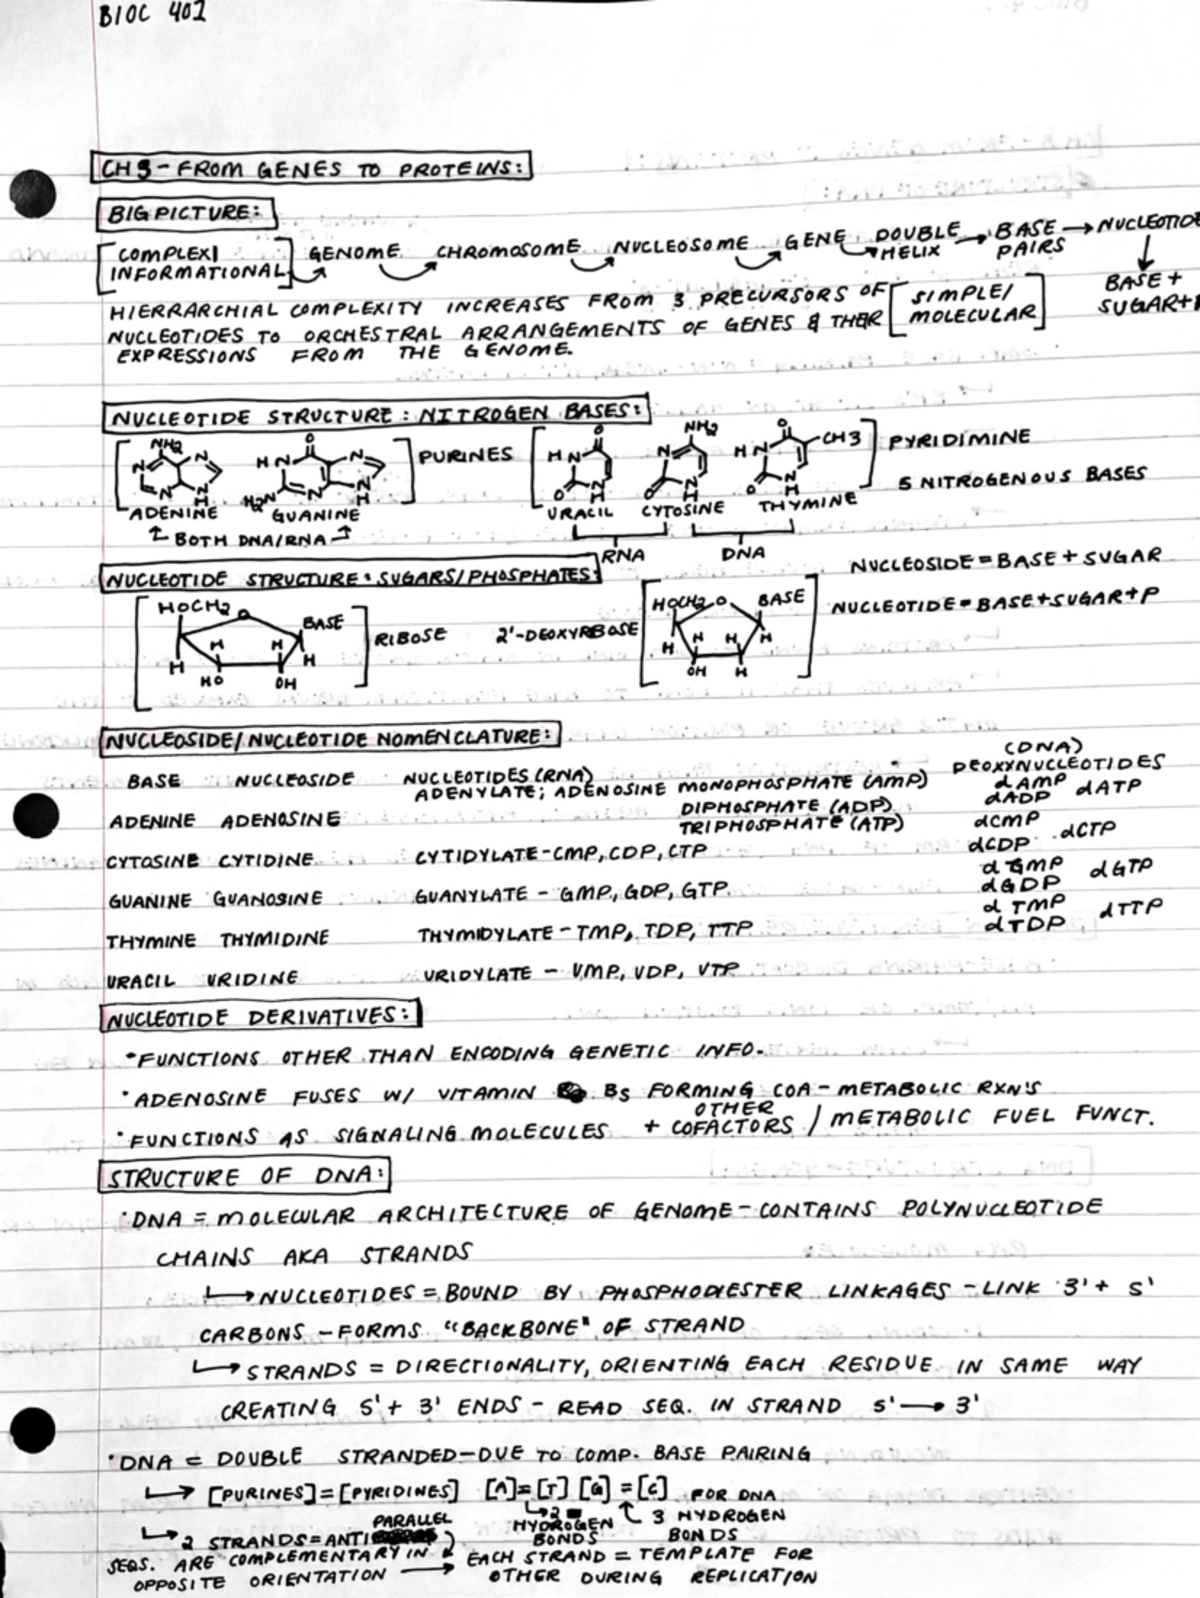 BIOC 401
CH 3 - FROM GENES TO PROTEINS:
BIG PICTURE:
[COMPLEX/ INFORMATIONAL] GENOME CHROMOSOME NUCLEOSOME GENE DOUBLE HELIX → BASE PAIRS → NUCLEOTIDE
BASE +
SUGAR+P
HIERRARCHIAL COMPLEXITY INCREASES FROM 3 PRECURSORS OF [SIMPLE/ MOLECULAR]
NUCLEOTIDES TO ORCHESTRAL ARRANGEMENTS OF GENES & THER
EXPRESSIONS FROM THE GENOME.
NUCLEOTIDE STRUCTURE: NITROGEN BASES:
NH2 N N N N H O HN N H2N N N H PURINES O HN O N H NH2 N O N H O HN CH3 O N H PYRIDIMINE
5 NITROGENOUS BASES
ADENINE GUANINE URACIL CYTOSINE THYMINE
BOTH DNA/RNA RNA DNA
NUCLEOTIDE STRUCTURE: SUGARS/PHOSPHATES:
NUCLEOSIDE = BASE + SUGAR
HOCH2 O BASE RIBOSE 2'-DEOXYRBOSE HOCH2 O BASE NUCLEOTIDE = BASE+SUGAR+P
H H H H H H H H
HO OH OH H
NUCLEOSIDE/NUCLEOTIDE NOMENCLATURE:
(DNA)
BASE NUCLEOSIDE NUCLEOTIDES (RNA) DEOXYNUCLEOTIDES
ADENYLATE; ADENOSINE MONOPHOSPHATE (AMP) dAMP
DIPHOSPHATE (ADP) dADP dATP
ADENINE ADENOSINE TRIPHOSPHATE (ATP) dCMP
CYTOSINE CYTIDINE CYTIDYLATE - CMP, CDP, CTP dCDP dCTP
dGMP dGTP
GUANINE GUANOSINE GUANYLATE - GMP, GDP, GTP dGDP
dTMP dTTP
THYMINE THYMIDINE THYMIDYLATE - TMP, TDP, TTP dTDP
URACIL URIDINE URIDYLATE - UMP, UDP, UTP
NUCLEOTIDE DERIVATIVES:
• FUNCTIONS OTHER THAN ENCODING GENETIC INFO.
• ADENOSINE FUSES W/ VITAMIN B5 FORMING COA - METABOLIC RXN'S
• FUNCTIONS AS SIGNALING MOLECULES + OTHER COFACTORS / METABOLIC FUEL FUNCT.
STRUCTURE OF DNA:
• DNA = MOLECULAR ARCHITECTURE OF GENOME - CONTAINS POLYNUCLEOTIDE
CHAINS AKA STRANDS
→ NUCLEOTIDES = BOUND BY PHOSPHODIESTER LINKAGES - LINK 3' + 5'
CARBONS - FORMS "BACKBONE" OF STRAND
→ STRANDS = DIRECTIONALITY, ORIENTING EACH RESIDUE IN SAME WAY
CREATING 5' + 3' ENDS - READ SEQ. IN STRAND 5' → 3'
• DNA = DOUBLE STRANDED - DUE TO COMP. BASE PAIRING
→ [PURINES] = [PYRIDINES] [A]=[T] [G]=[C] FOR DNA
→ 2 HYDROGEN BONDS 3 HYDROGEN BONDS
→ 2 STRANDS = ANTI PARALLEL
SEQS. ARE COMPLEMENTARY IN
OPPOSITE ORIENTATION → EACH STRAND = TEMPLATE FOR
OTHER DURING REPLICATION